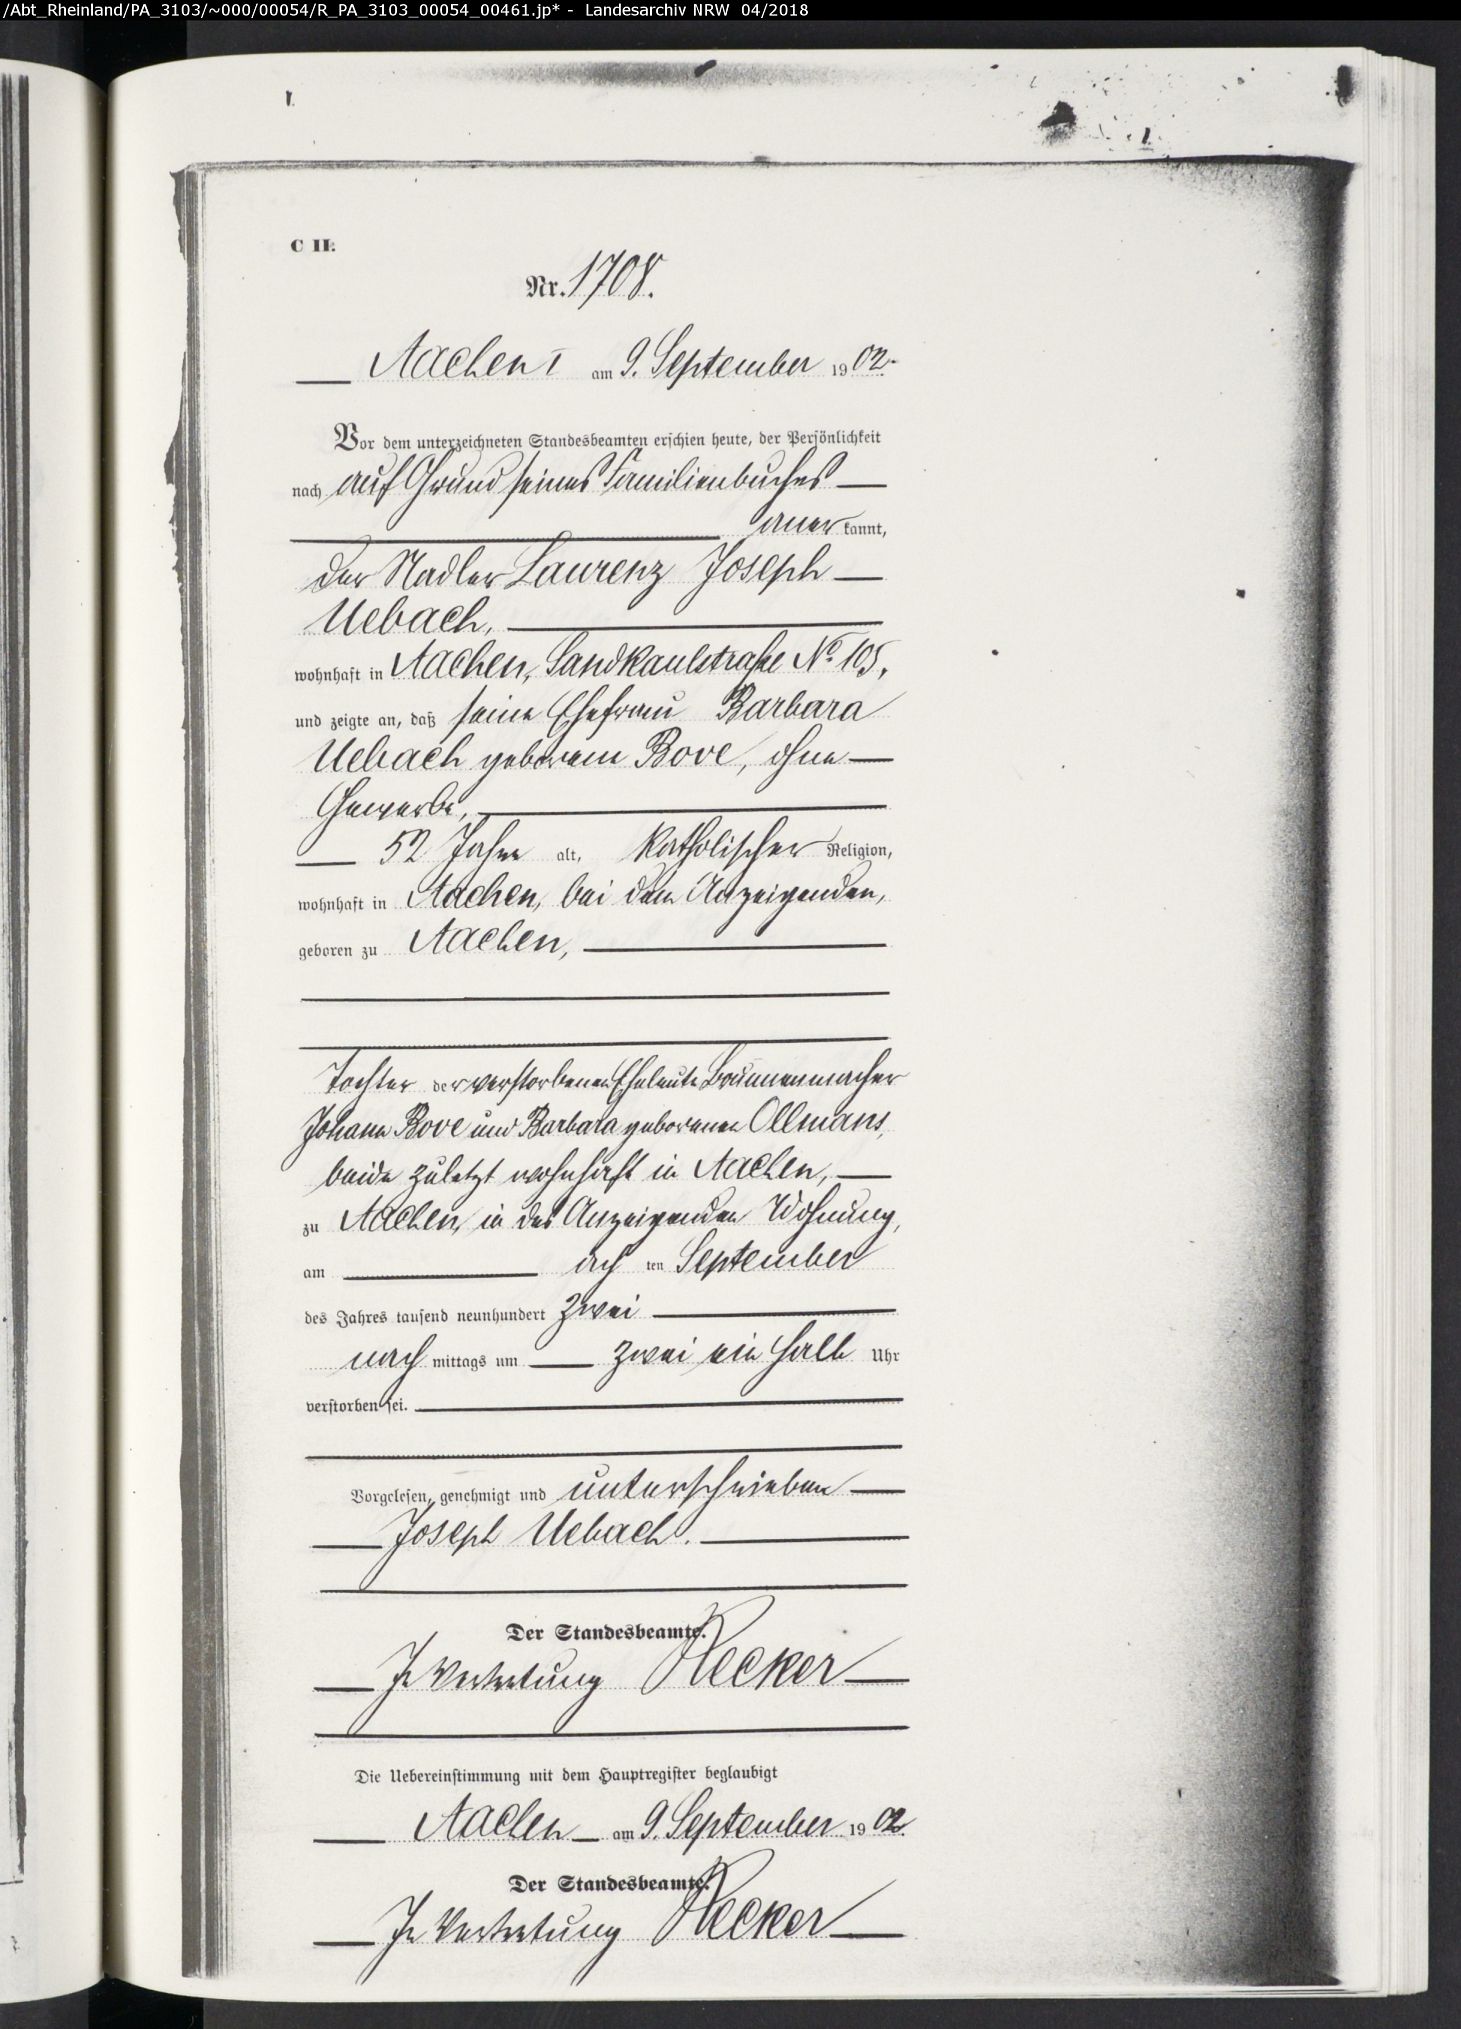 /Abt_Rheinland/PA_3103/~000/00054/R_PA_3103_00054_00461.jp* - Landesarchiv NRW 04/2018
C II.
Nr. 1708.
Aachen I am 9. September 1902.
Vor dem unterzeichneten Standesbeamten erschien heute, der Persönlichkeit
nach auf Grund seines Familienbuches
anerkannt,
der Nadler Laurenz Joseph
Uebach,
wohnhaft in Aachen, Sandkaulstraße No. 105,
und zeigte an, daß seine Ehefrau Barbara
Uebach geborene Bove, ohne
Gewerbe,
52 Jahre alt, katholischer Religion,
wohnhaft in Aachen, bei dem Anzeigenden,
geboren zu Aachen,
Tochter der verstorbenen Eheleute Brunnenmacher
Johann Bove und Barbara geborenen Ollmans,
beide zuletzt wohnhaft in Aachen,
zu Aachen, in des Anzeigenden Wohnung,
am achten September
des Jahres tausend neunhundert zwei
nachmittags um zwei ein halb Uhr
verstorben sei.
Vorgelesen, genehmigt und unterschrieben
Joseph Uebach.
Der Standesbeamte.
In Vertretung Hecker
Die Uebereinstimmung mit dem Hauptregister beglaubigt
Aachen am 9. September 1902.
Der Standesbeamte.
In Vertretung Hecker